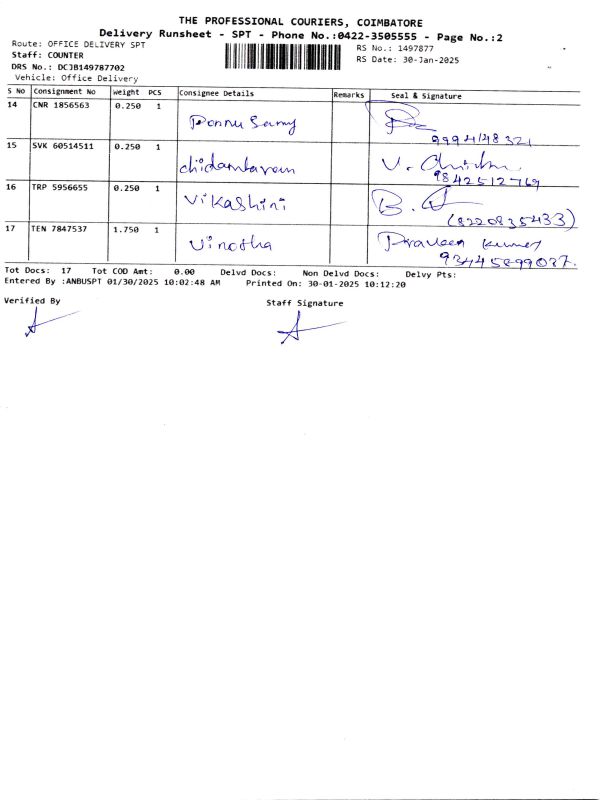 THE PROFESSIONAL COURIERS, COIMBATORE
Delivery Runsheet - SPT - Phone No.:0422-3505555 - Page No.:2
Route: OFFICE DELIVERY SPT
RS No.: 1497877
Staff: COUNTER
RS Date: 30-Jan-2025
DRS No.: DCJB149787702
Vehicle: Office Delivery
S No Consignment No Weight PCS Consignee Details Remarks Seal & Signature
14 CNR 1856563 0.250 1 Ponnu Samy
9994148321
15 SVK 60514511 0.250 1 chidambaram
9842512769
16 TRP 5956655 0.250 1 Vikashini
(8220835433)
17 TEN 7847537 1.750 1 Vinotha Praveen Kumar
Tot Docs: 17 Tot COD Amt: 0.00 Delvd Docs: Non Delvd Docs: Delvy Pts:
Entered By :ANBUSPT 01/30/2025 10:02:48 AM Printed On: 30-01-2025 10:12:20
Verified By Staff Signature